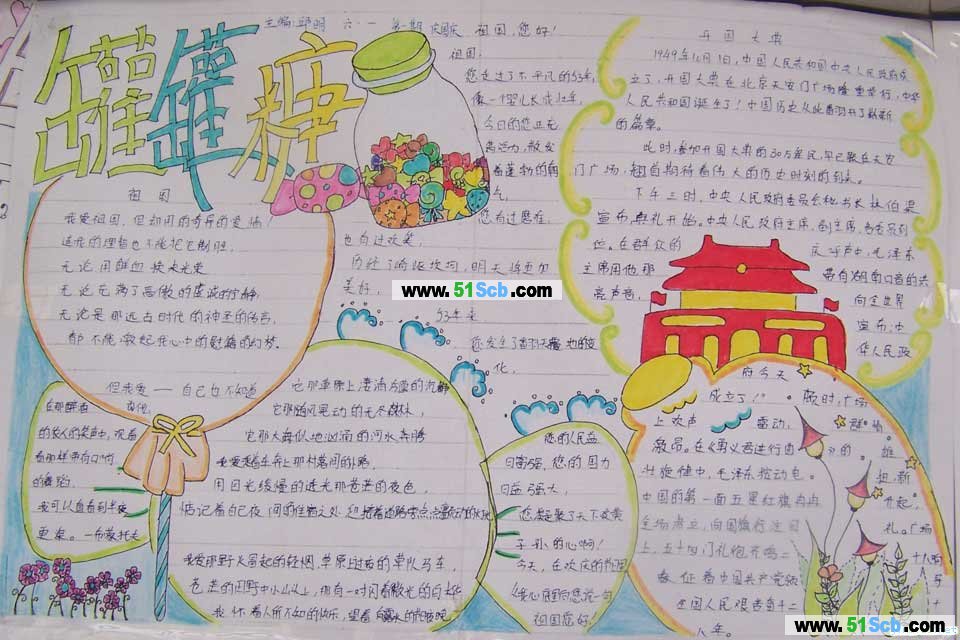 罐罐糖
主编:邱明 六·一 第一期 庆国庆
祖国,您好!
祖国:
您走过了不平凡的53年,
像一个婴儿长成壮年,
今日的您正充
满活力,散发
着蓬勃的
您有过磨难,
也有过欢笑,
历经了崎岖坎坷,明天将更加
美好,
53年来
您发生了翻天覆地的变
化,
您的人民益
日富强,您的国力
日益强大,
您凝聚了天下炎黄
子孙的心啊!
今天,在欢庆的节日
衷心的向您说一句
祖国您好!
祖国
我爱祖国,但却用的奇异的爱情!
连我的理智也不能把它制胜,
无论用鲜血换来光荣
无论充满了高傲的虔诚的宁静,
无论是那远古时代的神圣的传言,
都不能激起我心中的慰藉的幻梦。
但我爱——自己也不知道
它那草原上凄清冷漠的沉静
它那随风晃动的无尽森林,
它那大海似地汹涌的河水奔腾
我爱乘着车奔上那村落间的小路
用目光缓慢的透过那苍茫的夜色,
惦记着自己夜间的住宿之处,
我爱那野火冒起的轻烟,草原上过夜的车队马车,
苍茫的田野中小山头上,那有一对闪着微光的白桦
我怀着人所不知的快乐,望着
在那醉酒
的农人的笑声中,观看
看那样带有口哨
的舞蹈,
我可以直看到半夜
更深。
开国大典
1949年10月1日,中国人民共和国中央人民政府成
立了,开国大典在北京天安门广场隆重举行,中华
人民共和国诞生了!中国历史从此翻开了崭新
的篇章。
此时,参加开国大典的30万军民,早已聚在天安
门广场,翘首期待着伟大的历史时刻的到来。
下午三时,中央人民政府委员会秘书长林伯渠
宣布典礼开始。中央人民政府主席、副主席、各委员列
位。在群众的 庆呼声中,毛泽东
主席用他那 带有湖南口音的洪
亮声音, 向全世界
宣布:中
华人民政
府今天
成立了!” 顿时,广场
上欢声 雷动, 群情
激昂。在《义勇军进行曲》的
雄壮旋律中,毛泽东按动电
中国的第一面五星红旗冉冉
升起,
全场肃立,向国旗行注目
礼。广场
上,五十四门礼炮齐鸣二
十八响
象征着中国共产党领
导
全国人民艰苦奋斗二十
八年。
www.51Scb.com
www.51Scb.com